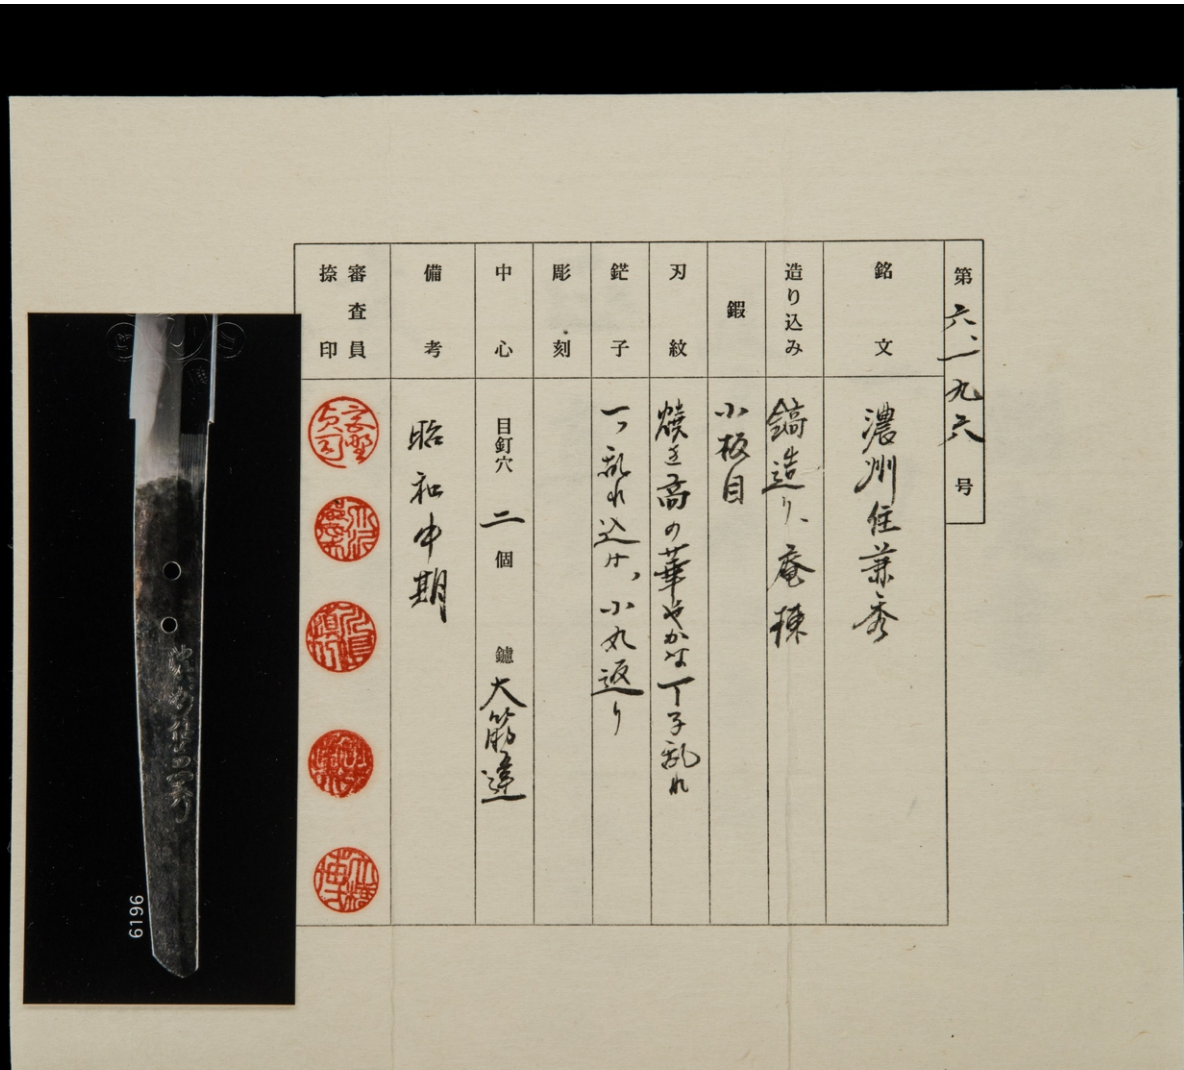 第六、一九六号
銘文
濃州住兼秀
造り込み
鎬造り、庵棟
鍜
小板目
刃紋
焼き高の華やかな丁子乱れ
鋩子
一つ乱れ込け、小丸返り
彫刻
中心
目釘穴 二 個 鑢 大筋違
備考
昭和中期
審査員
捺印
6196